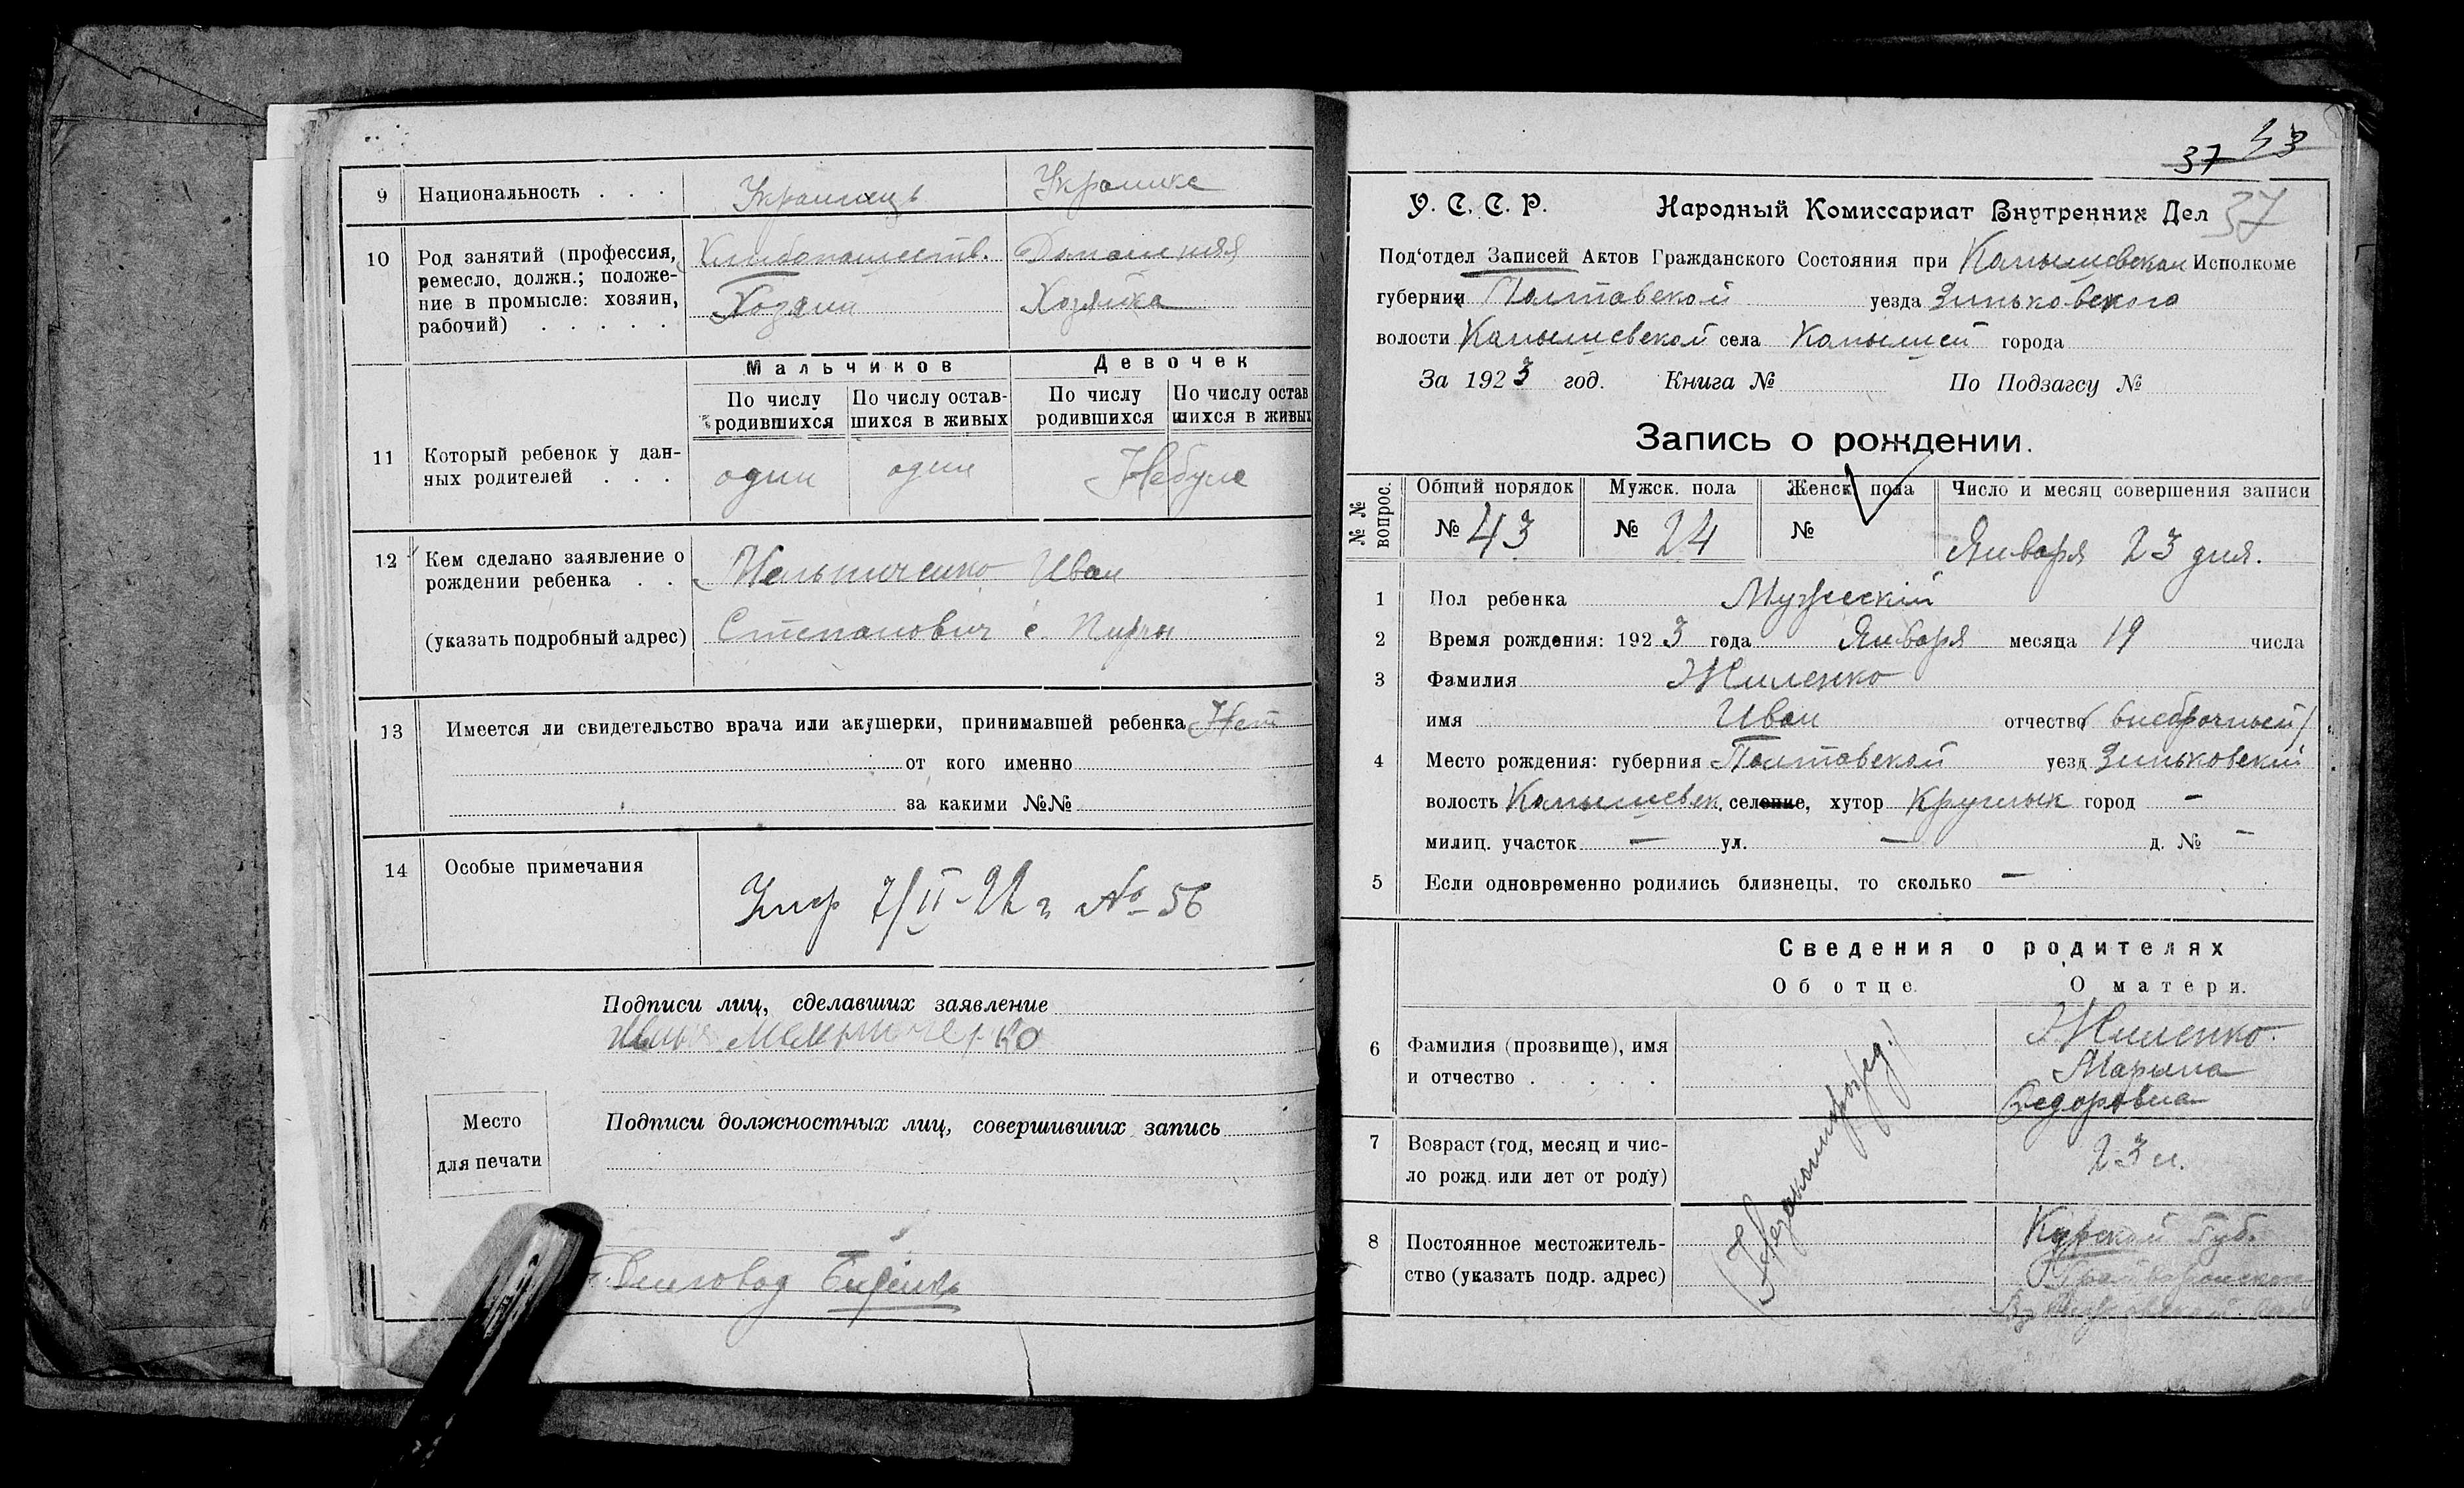 9 Национальность . . . Украинець Украинка
10 Род занятий (профессия, Хлибопашеств. Домашняя
ремесло, должн.; положе-
ние в промысле: хозяин, Хозяин Хозяйка
рабочий) . . . . .
Мальчиков Девочек
По числу родившихся По числу остав- шихся в живых По числу родившихся По числу остав шихся в живых
11 Который ребенок у дан-
ных родителей . . . один один Небуло
12 Кем сделано заявление о
рождении ребенка . . Мельниченко Иван
(указать подробный адрес) Степанович с.
13 Имеется ли свидетельство врача или акушерки, принимавшей ребенка Нет
от кого именно
за какими №№
14 Особые примечания
Умер 7/II-22 г №56
Подписи лиц, сделавших заявление
Мельниченко
Место
для печати
Подписи должностных лиц, совершивших запись
37 43
У. С. С. Р. Народный Комиссариат Внутренних Дел 37
Под'отдел Записей Актов Гражданского Состояния при Камышевском Исполкоме
губернии Полтавской уезда Зиньковского
волости Камышевской села Камышей города
За 1923 год. Книга № По Подзагсу №
Запись о рождении.
№№ вопрос. Общий порядок Мужск. пола Женск. пола Число и месяц совершения записи
№ 43 № 24 № Января 23 дня.
1 Пол ребенка Мужескій
2 Время рождения: 1923 года Января месяца 19 числа
3 Фамилия Жиленко
имя Иван отчество (внебрачный)
4 Место рождения: губерния Полтавской уезд Зиньковский
волость Камышевск. селение, хутор Круглык город -
милиц. участок — ул. — д. № —
5 Если одновременно родились близнецы, то сколько —
Сведения о родителях
Об отце. О матери.
6 Фамилия (прозвище), имя Жиленко.
и отчество . . . . . Марина
Федоровна
7 Возраст (год, месяц и чис-
ло рожд. или лет от роду) 23 л.
(Незаконнорожд.)
8 Постоянное местожитель- Курской Губ.
ство (указать подр. адрес) Грайворонского